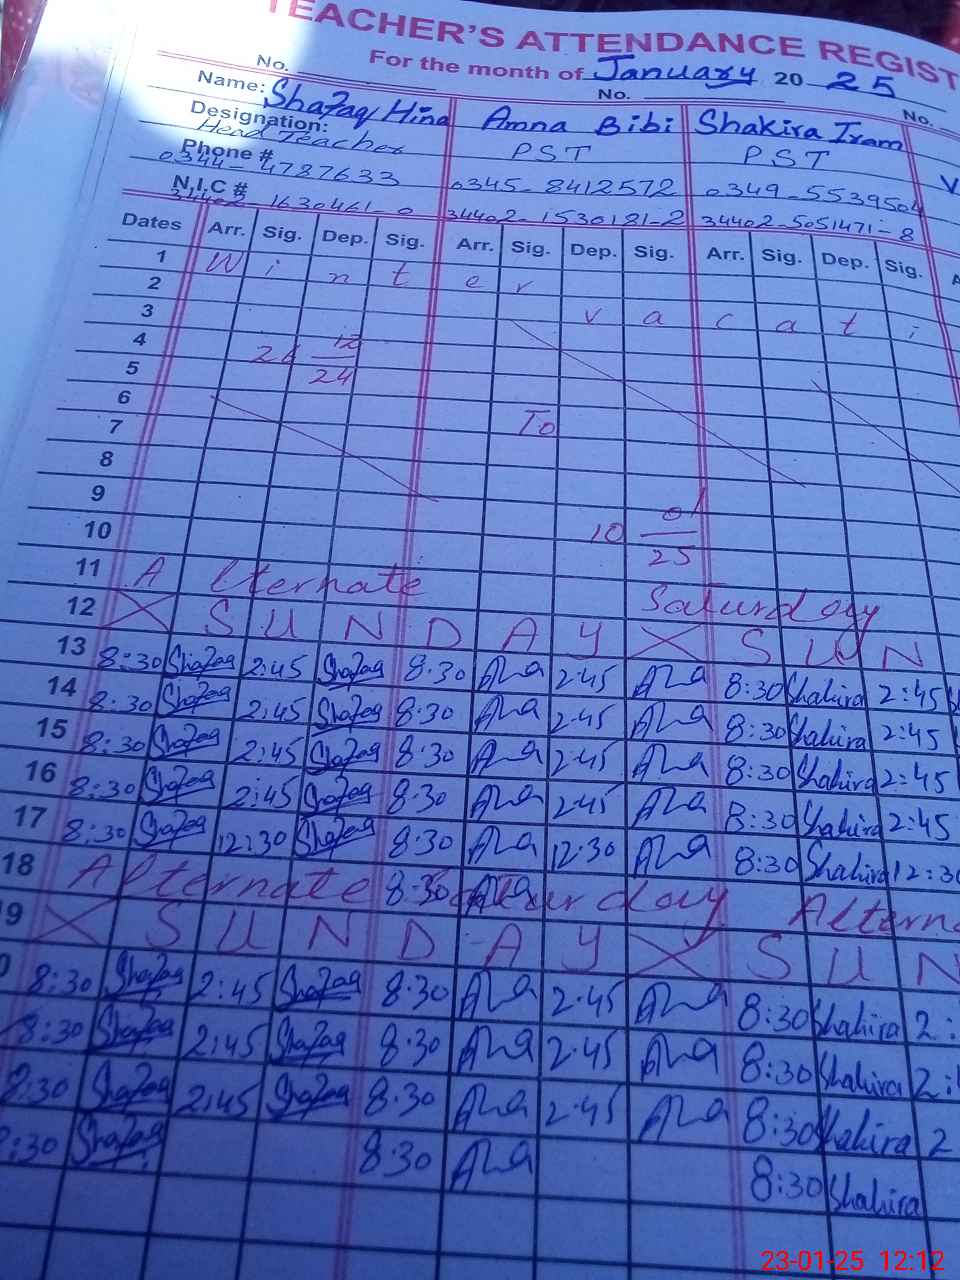 TEACHER'S ATTENDANCE REGIST
For the month of January 20 25
No. No. No.
Name: Shafaq Hina Amna Bibi Shakira Iram
Designation: Head Teacher PST PST
Phone # 0344-4787633 0345-8412572 0349-5539504
N.I.C # 34402-1630461-0 34402-1530121-2 34402-5051471-8
Dates Arr. Sig. Dep. Sig. Arr. Sig. Dep. Sig. Arr. Sig. Dep. Sig.
1 W i n t e r
2
3 v a c a t i
4 12
5 24
6
7 To
8
9 01
10 10 25
11 Alternate Saturday
12 X S U N D A Y X S U N
13 8:30 Shafaq 2:45 Shafaq 8.30 2.45 8:30 Shakira 2:45
14 8:30 Shafaq 2:45 Shafaq 8.30 2.45 8:30 Shakira 2:45
15 8:30 Shafaq 2:45 Shafaq 8.30 2.45 8:30 Shakira 2:45
16 8:30 Shafaq 2:45 Shafaq 8.30 2.45 8:30 Shakira 2:45
17 8:30 Shafaq 12:30 Shafaq 8.30 12.30 8:30 Shakira 12:30
18 Alternate 8.30 Saturday Altern
9 X S U N D A Y X S U N
0 8:30 Shafaq 2:45 Shafaq 8.30 2.45 8:30 Shakira 2:
8:30 Shafaq 2:45 Shafaq 8.30 2.45 8:30 Shakira 2:
8:30 Shafaq 2:45 Shafaq 8.30 2.45 8:30 Shakira 2
:30 Shafaq 8.30 8:30 Shakira
23-01-25 12:12